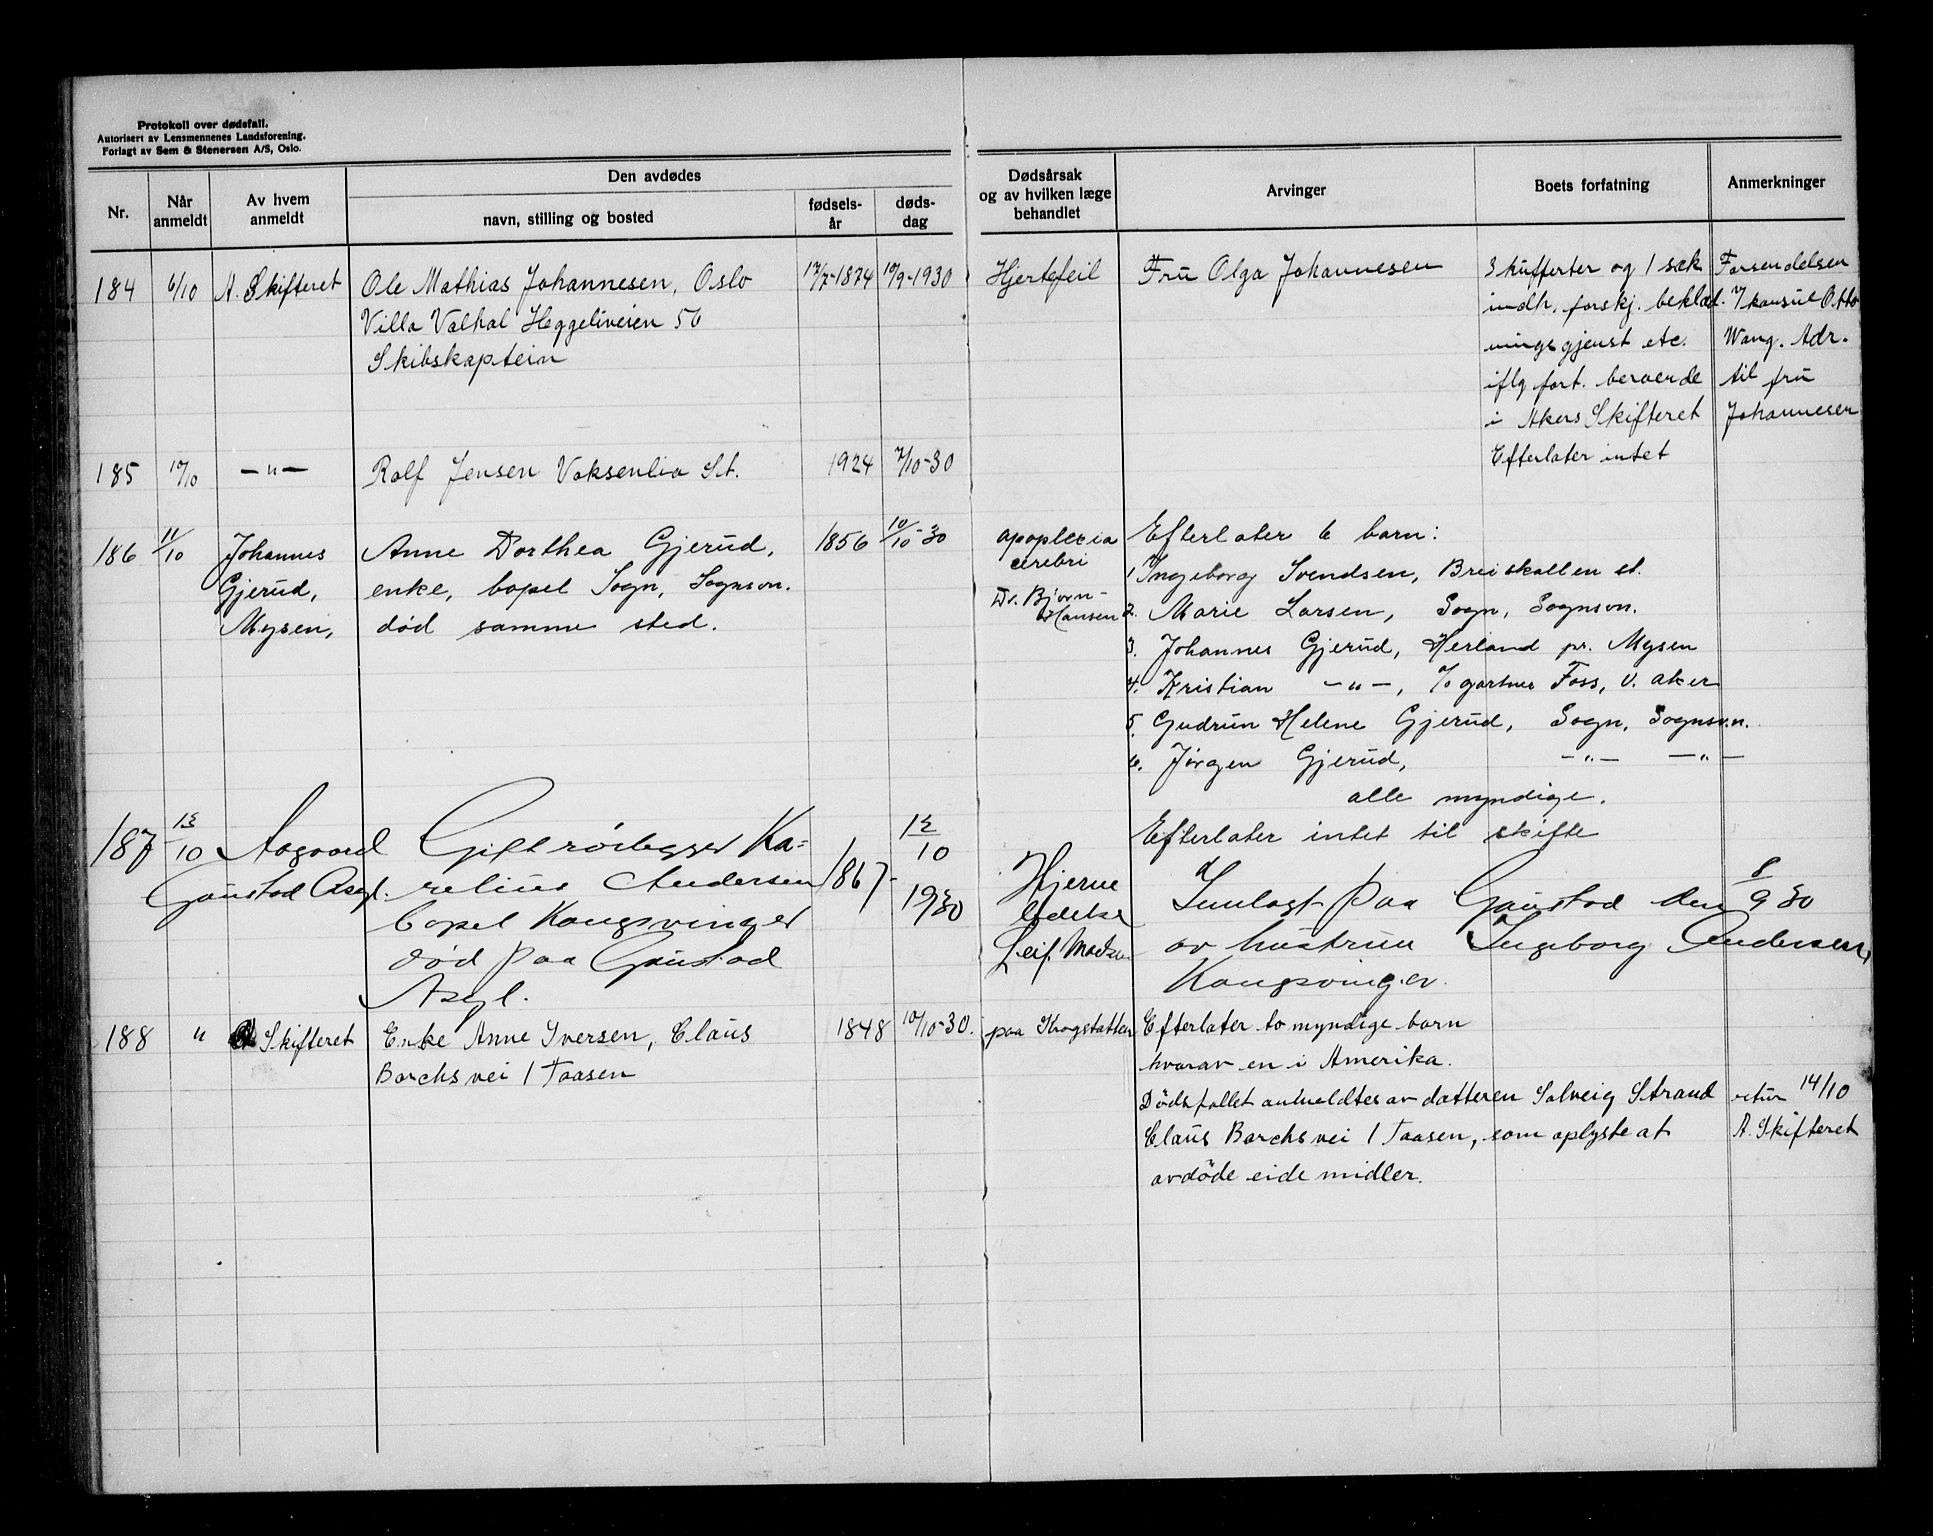 Protokoll over dødsfall.
Autorisert av Lensmennenes Landsforening.
Forlagt av Sem & Stenersen A/S, Oslo.
Nr.
Når anmeldt
Av hvem anmeldt
Den avdødes
navn, stilling og bosted
fødsels-år
døds-dag
Dødsårsak og av hvilken læge behandlet
Arvinger
Boets forfatning
Anmerkninger
184 6/10 A. Skifteret
Ole Mathias Johannesen, Oslo
Villa Valhal Heggeliveien 56
Skibskaptein
17/7-1874 19/9-1930
Hjertefeil
Fru Olga Johannesen
3 kufferter og 1 sæk
indh. forskj. beklæd-
ningsgjenst etc.
iflg fort. beroende
i Akers Skifteret
Forsendelsen
v/konsul Otto
Wang. Adr.
til fru
Johannesen
185 10/10 — " —
Rolf Jensen Voksenlia St.
1924 7/10-30
Efterlater intet
186 11/10 Johannes
Gjerud,
Mysen,
Anne Dorthea Gjerud,
enke, bopel Sogn, Sognsvn.
død samme sted.
1856 10/10-30
apoplexia
cerebri
Dr. Bjørn-
Hansen
Efterlater 6 barn:
1. Ingeborg Svendsen, Breiskallen st.
2. Marie Larsen, Sogn, Sognsvn.
3. Johannes Gjerud, Herland pr. Mysen
4. Kristian — " —, c/o gartner Foss, V. Aker
5. Gudrun Helene Gjerud, Sogn, Sognsvn.
6. Jørgen Gjerud, — " — — " —
alle myndige.
Efterlater intet til skifte
187 13/10 Aagaard
Gaustad Asyl.
Gift rørlegger Ka=
relius Andersen
bopel Kongsvinger
død paa Gaustad
Asyl.
1867- 12/10 1930
Hjerne
lidelse
Leif Madsen
Innlagt paa Gaustad den 8/9 30
av hustruen Ingeborg Andersen,
Kongsvinger.
188 " A Skifteret
Enke Anne Iversen, Claus
Borchs vei 1 Taasen
1848 10/10-30.
paa Krogstøtten
Efterlater to myndige barn
hvorav en i Amerika.
Dødsfallet anmeldtes av datteren Solveig Strand
Claus Borchs vei 1 Taasen, som oplyste at
avdøde eide midler.
retur 14/10
A. Skifteret